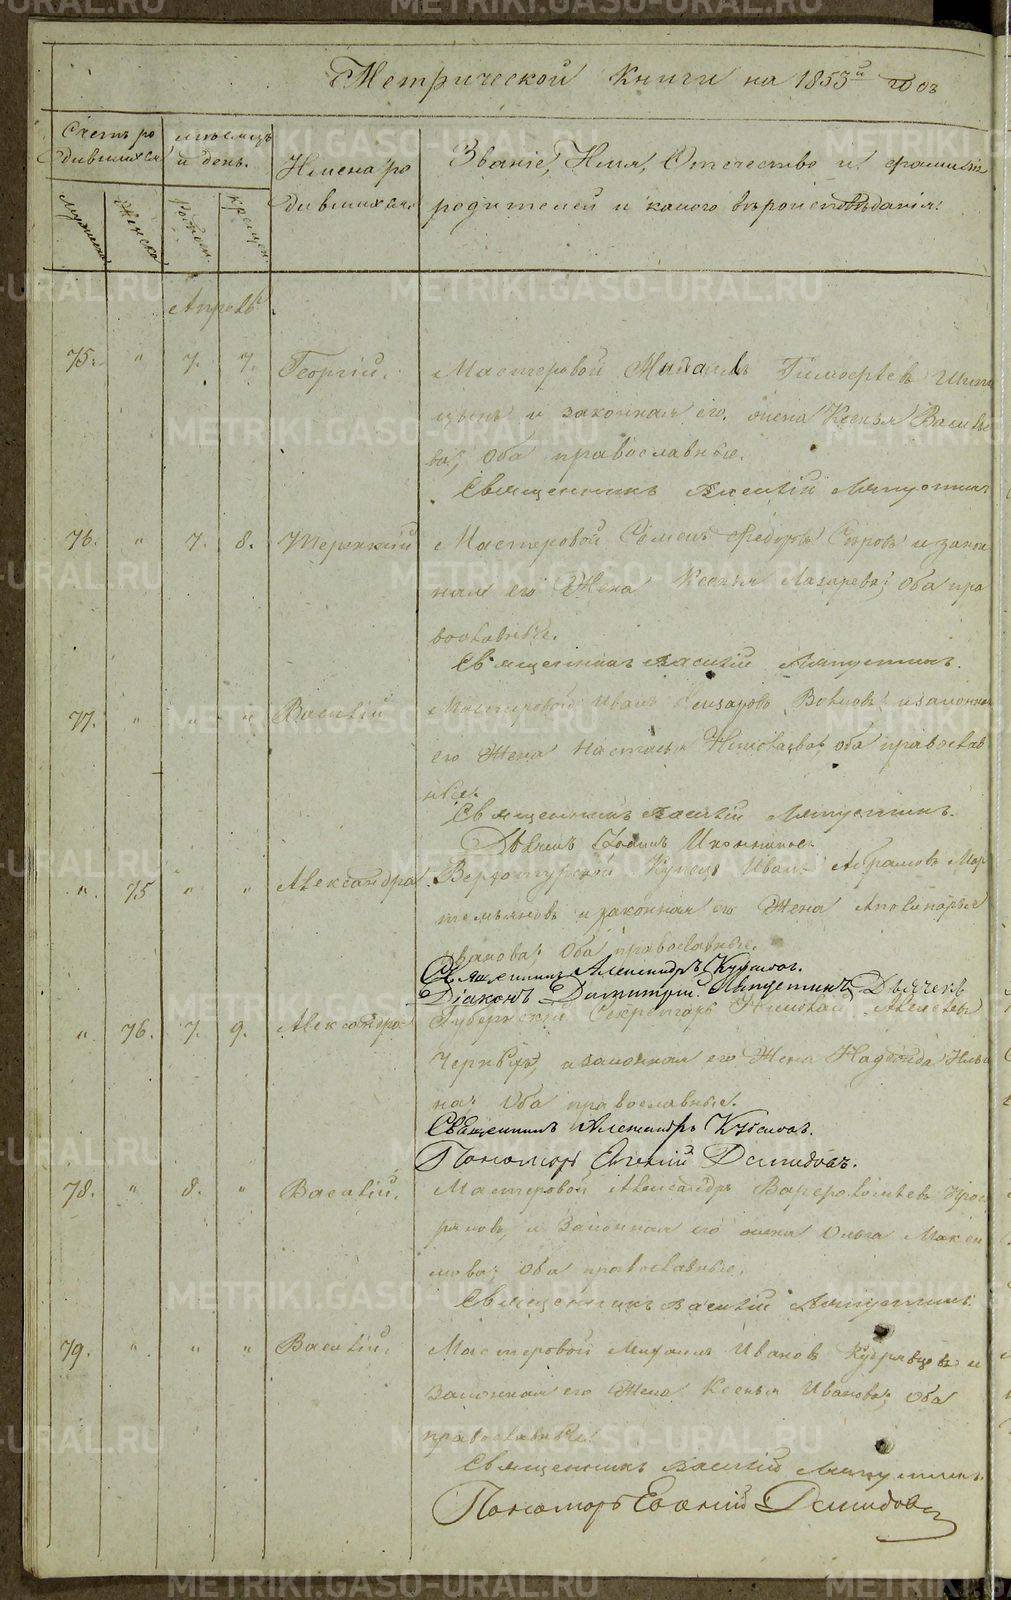 Метрической книги на 1853й годъ
Счетъ ро
дившихся
мѣсяцъ
и день.
Имена ро
дившихся.
Званіе, Имя, Отечество и фамилія
родителей и какого вѣроисповѣданія.
мужеска
женска
рожден.
крещен.
Апрель
75. " 7. 7. Георгій. Мастеровой Михаилъ Тимофѣевъ
и законная его жена Ксенья Василье
ва; оба православные.
Священникъ Василій Ляпустинъ
76. " 7. 8. Терентій Мастеровой Семенъ Федоровъ и закон
ная его Жена Ксенья Лазарева; оба пра
вославные.
Священникъ Василій Ляпустинъ.
77. " " " Василій Мастеровой Иванъ Елизаровъ Волковъ и законная
его Жена Настасья оба православ
ные.
Священникъ Василій Ляпустинъ.
Дьячекъ Іоаннъ
" 75 " " Александра Верхотурской Купецъ Иванъ Абрамовъ Мар
темьяновъ и законная его Жена Аполинарья
Иванова; оба православные.
Священникъ Александръ
Діаконъ Димитрий Ляпустинъ Дьячекъ
" 76. 7. 9. Александра Губернскій Секретарь Николай Алексѣевъ
Черныхъ, и законная его Жена Надежда Ильи
на; оба православные.
Священникъ Александръ
Пономарь Евгений Демидовъ.
78. " 8. " Василій. Мастеровой Александръ Варфоломѣевъ
и законная его жена Ольга Макси
мова; оба православные.
Священникъ Василій Ляпустинъ.
79. " " " Василій. Мастеровой Михаилъ Ивановъ Кудрявцовъ и
законная его Жена Ксенья Иванова; оба
православные.
Священникъ Василій Ляпустинъ.
Пономарь Евгений Демидовъ
METRIKI.GASO-URAL.RU